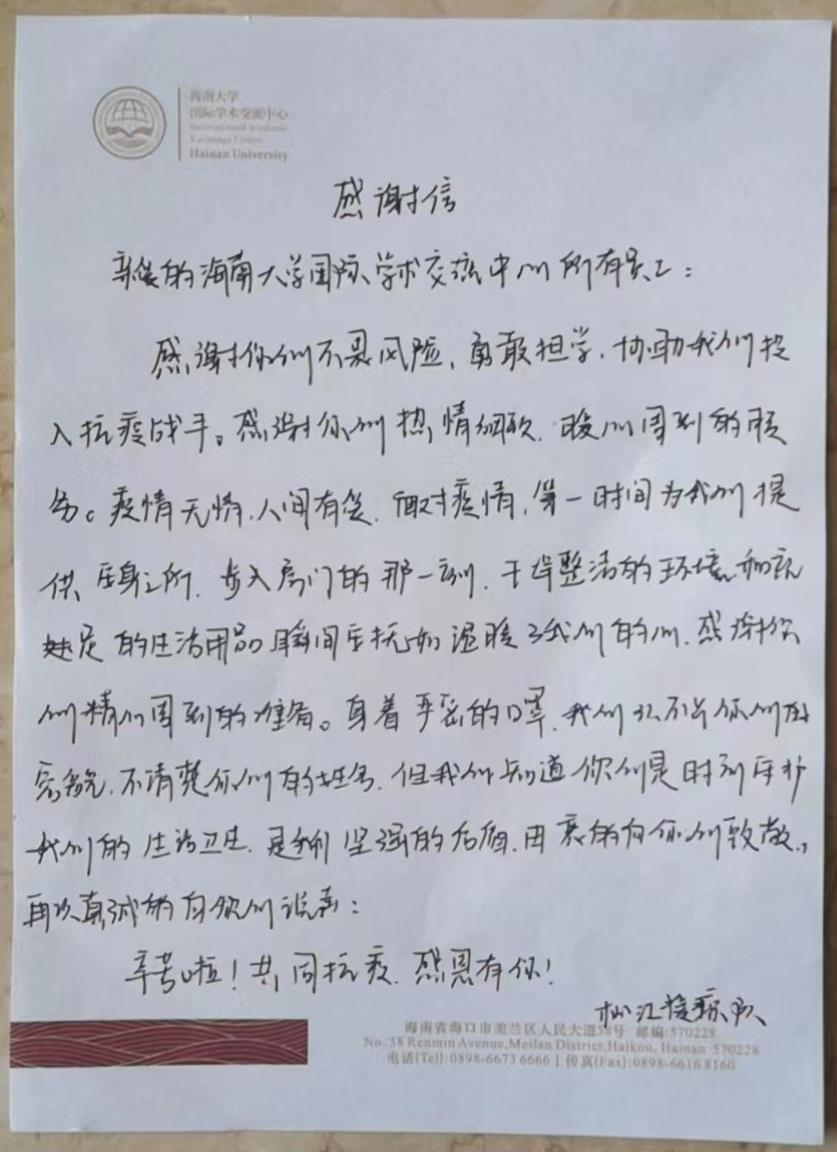 海南大学
国际学术交流中心
International Academic
Exchange Center
Hainan University
感谢信
亲爱的海南大学国际学术交流中心所有员工:
感谢你们不畏风险,勇敢担当,协助我们投
入抗疫战斗。感谢你们热情细致、暖心周到的服
务。疫情无情,人间有爱,面对疫情,第一时间为我们提
供居身之所,步入房门的那一刻,干净整洁的环境和
的生活用品瞬间温暖了我们的心,感谢你
们精心周到的准备。身着严密的口罩,我们认不出你们的
容貌,不清楚你们的姓名,但我们知道你们是时刻守护
我们的生活卫生,是我们坚强的后盾,由衷的向你们致敬,
再次真诚的向你们说声:
辛苦啦!共同抗疫,感恩有你!
松江援琼队
海南省海口市美兰区人民大道58号 邮编:570228
No. 58 Renmin Avenue,Meilan District,Haikou, Hainan 570228
电话(Tel):0898-6673 6666 | 传真(Fax):0898-6616 8160